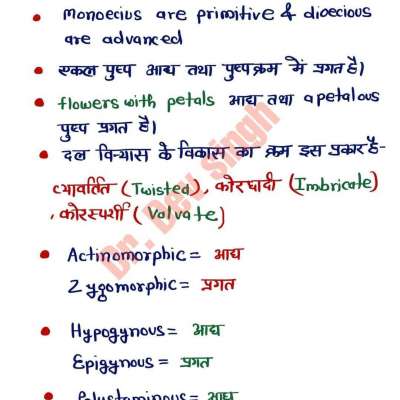 • Monoecius are primitive & dioecious
are advanced
• एकल पुष्प आद्य तथा पुष्पक्रम में प्रगत है।
• flowers with petals आद्य तथा apetalous
पुष्प प्रगत है।
• दल विन्यास के विकास का क्रम इस प्रकार है-
व्यावर्तित (Twisted), कोरछादी (Imbricate)
, कोरस्पर्शी (Valvate)
• Actinomorphic = आद्य
Zygomorphic = प्रगत
• Hypogynous = आद्य
Epigynous = प्रगत
• Polystaminous = आद्य
Dr. Dev Singh